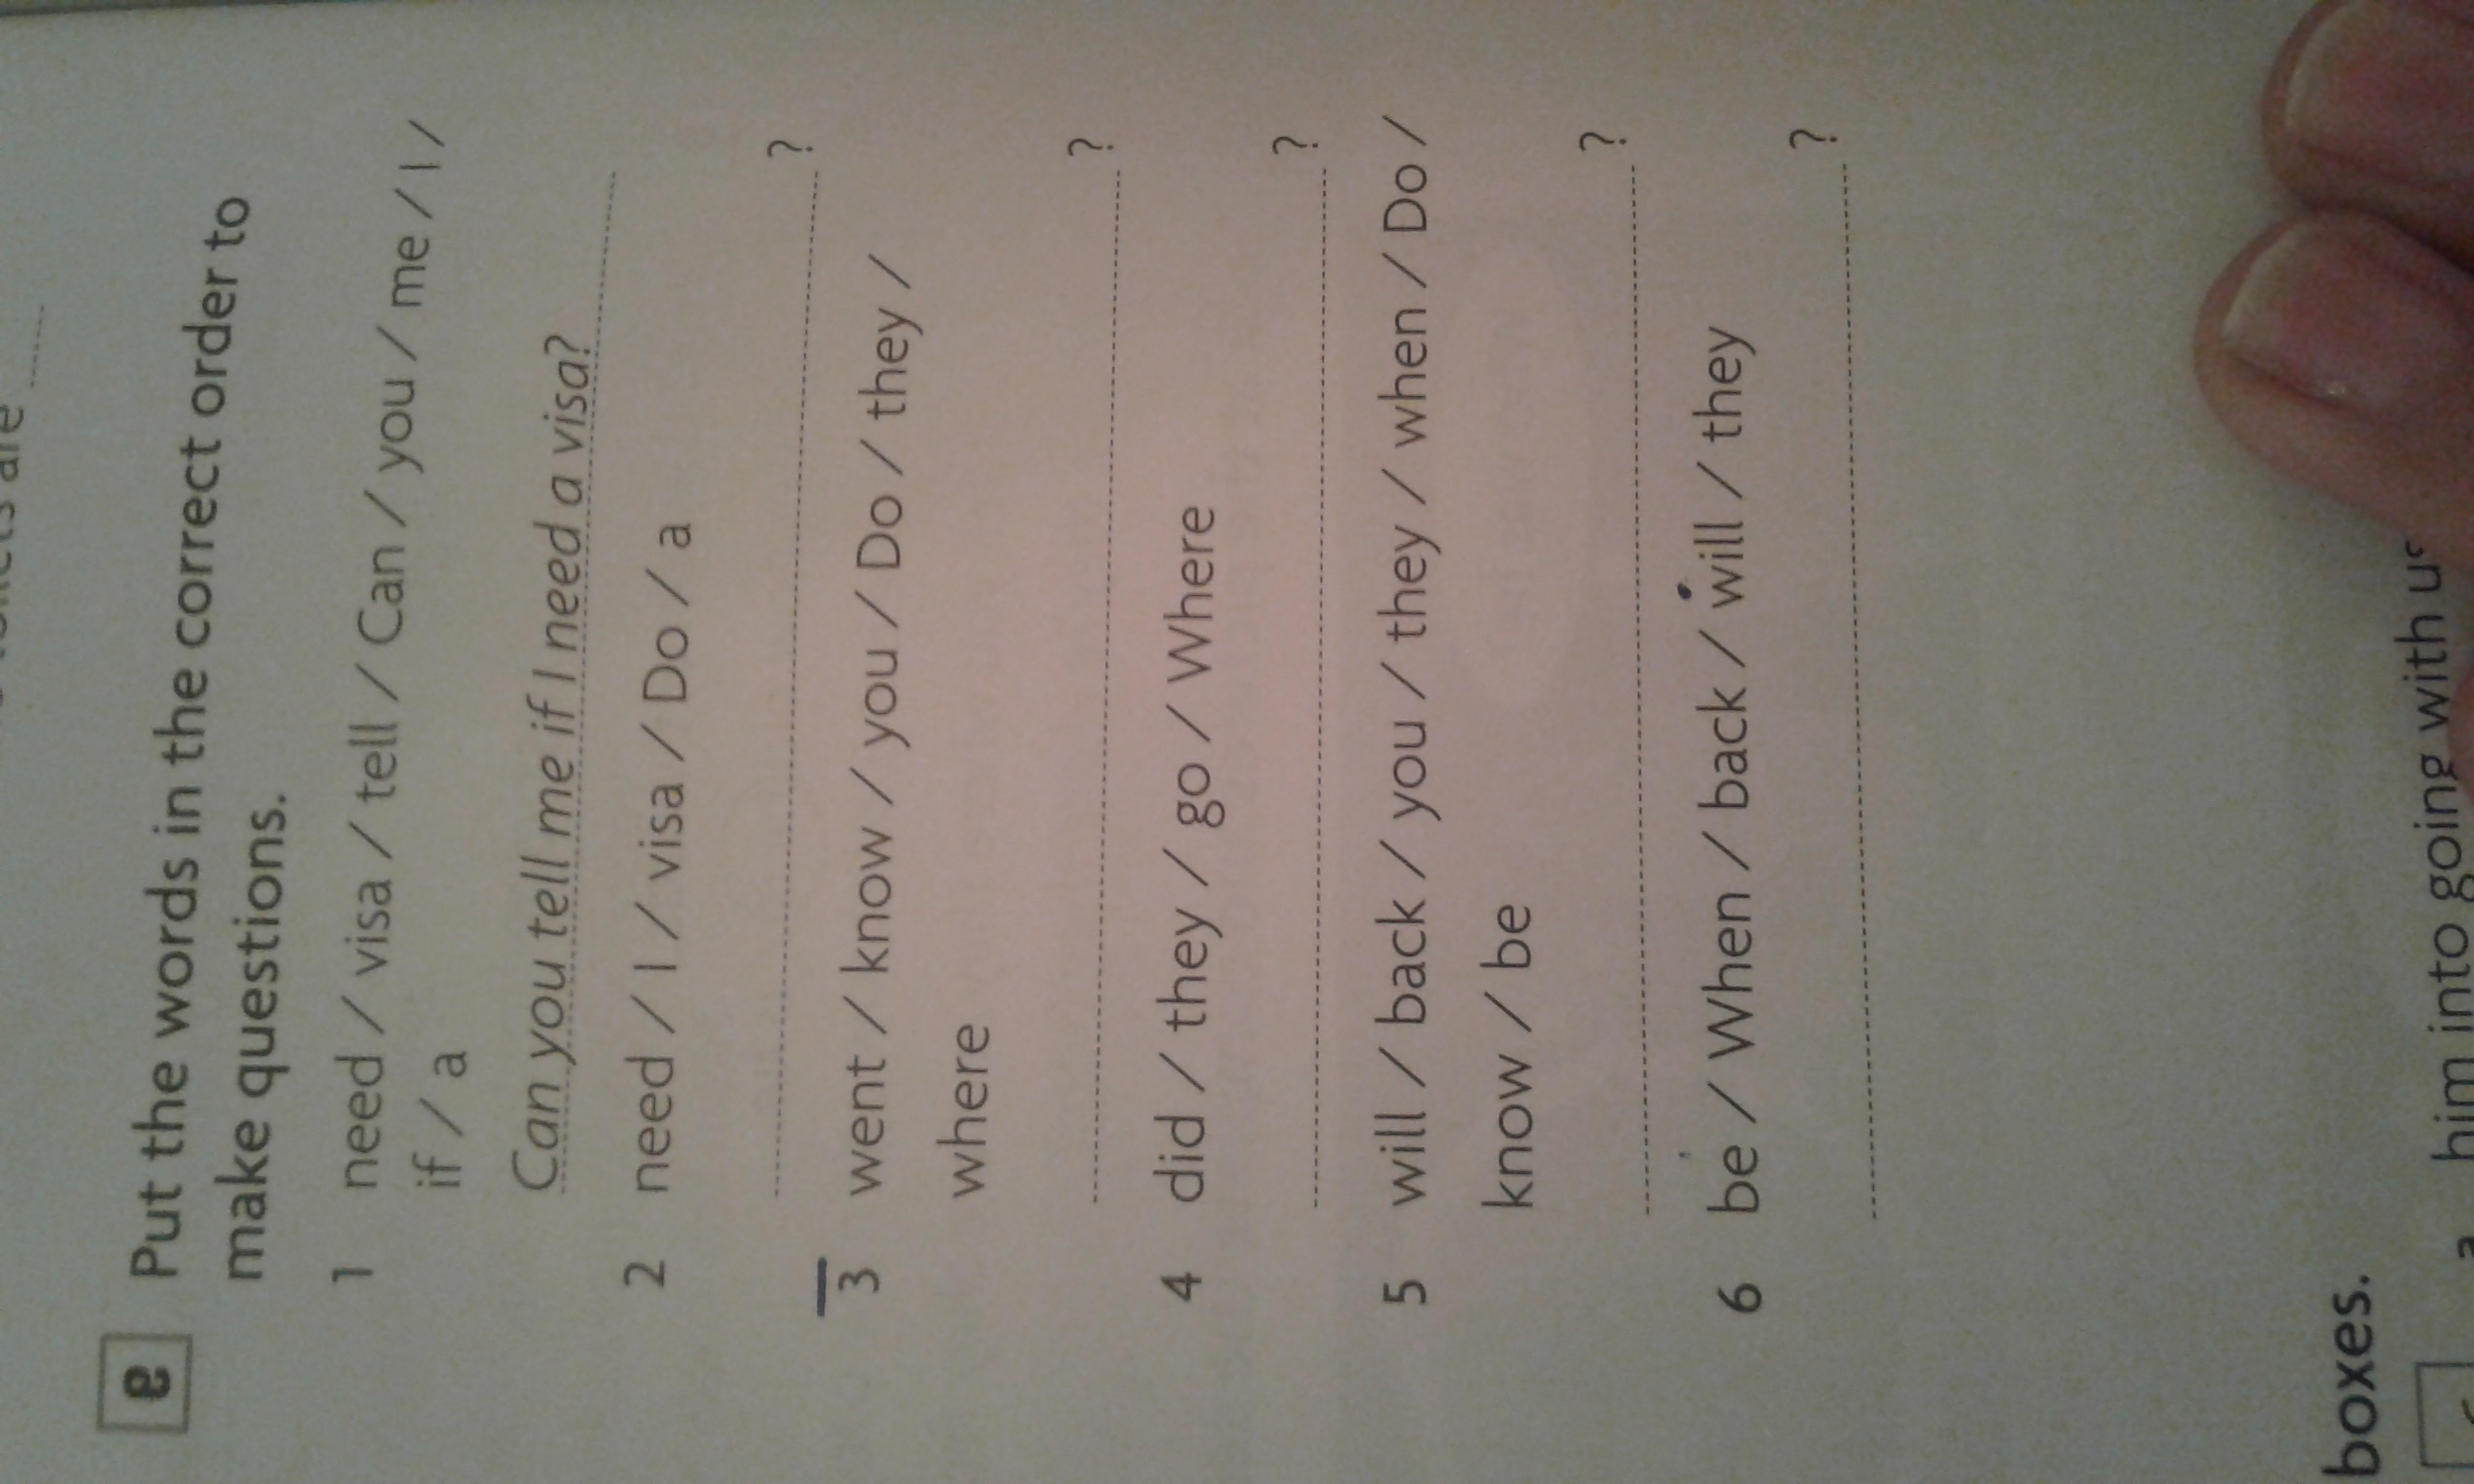 e Put the words in the correct order to
make questions.
1 need / visa / tell / Can / you / me / I /
if / a
Can you tell me if I need a visa?
2 need / I / visa / Do / a
?
3 went / know / you / Do / they /
where
?
4 did / they / go / Where
?
5 will / back / you / they / when / Do /
know / be
?
6 be / When / back / will / they
?
boxes.
a him into going with